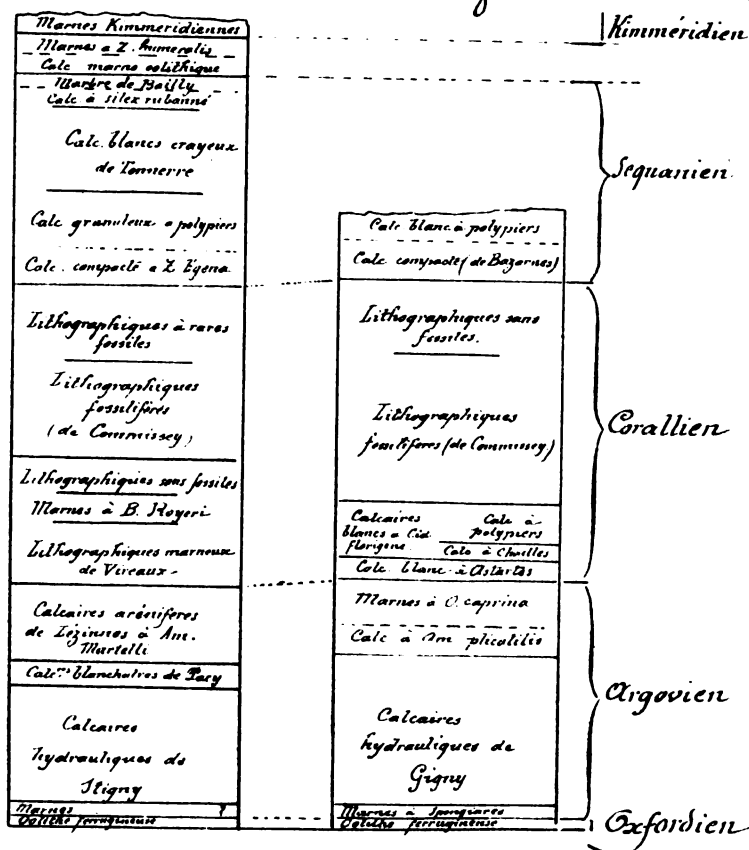 Marnes Kimméridiennes
Marnes a Z. humeralis
Calc marno oolithique
Marbre de Bailly
Calc à silex rubanné
Calc. blancs crayeux
de Tonnerre
Calc granuleux a polypiers
Calc. compacté a Z Egena
Lithographiques à rares
fossiles
Lithographiques
fossilifères
(de Commissey)
Lithographiques sans fossiles
Marnes à B. Royeri
Lithographiques marneux
de Vireaux
Calcaires arénifères
de Lézinnes à Am.
Martelli
blanchatres de Pacy
Calcaires
hydrauliques de
Stigny
Marnes ?
Oolithe ferrugineuse
Calc blanc à polypiers
Calc compacte (de Bazarnes)
Lithographiques sans
fossiles.
Lithographiques
fossilifères (de Commissey)
Calcaires
blancs a Cid
florigene
Calc à
polypiers
Calc à Chailles
Calc blanc à Astartes
Marnes à O. caprina
Calc à Am plicatilis
Calcaires
hydrauliques de
Gigny
Marnes à Spongiaires
Oolithe ferrugineuse
Kimméridien
Sequanien
Corallien
Argovien
Oxfordien